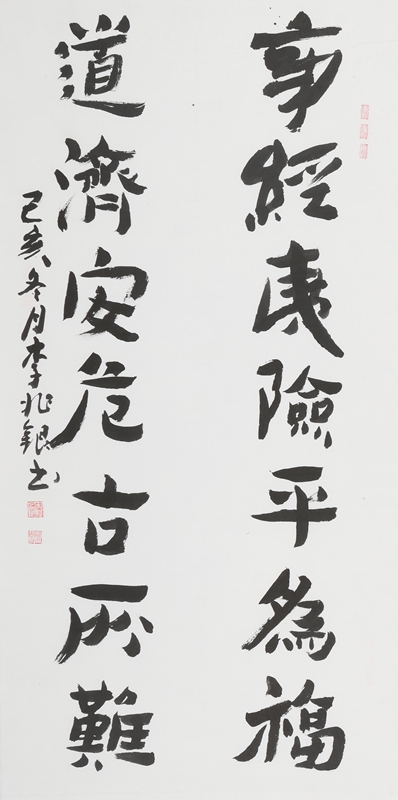 事經夷險平為福
道濟安危古所難
己亥冬月李兆銀書